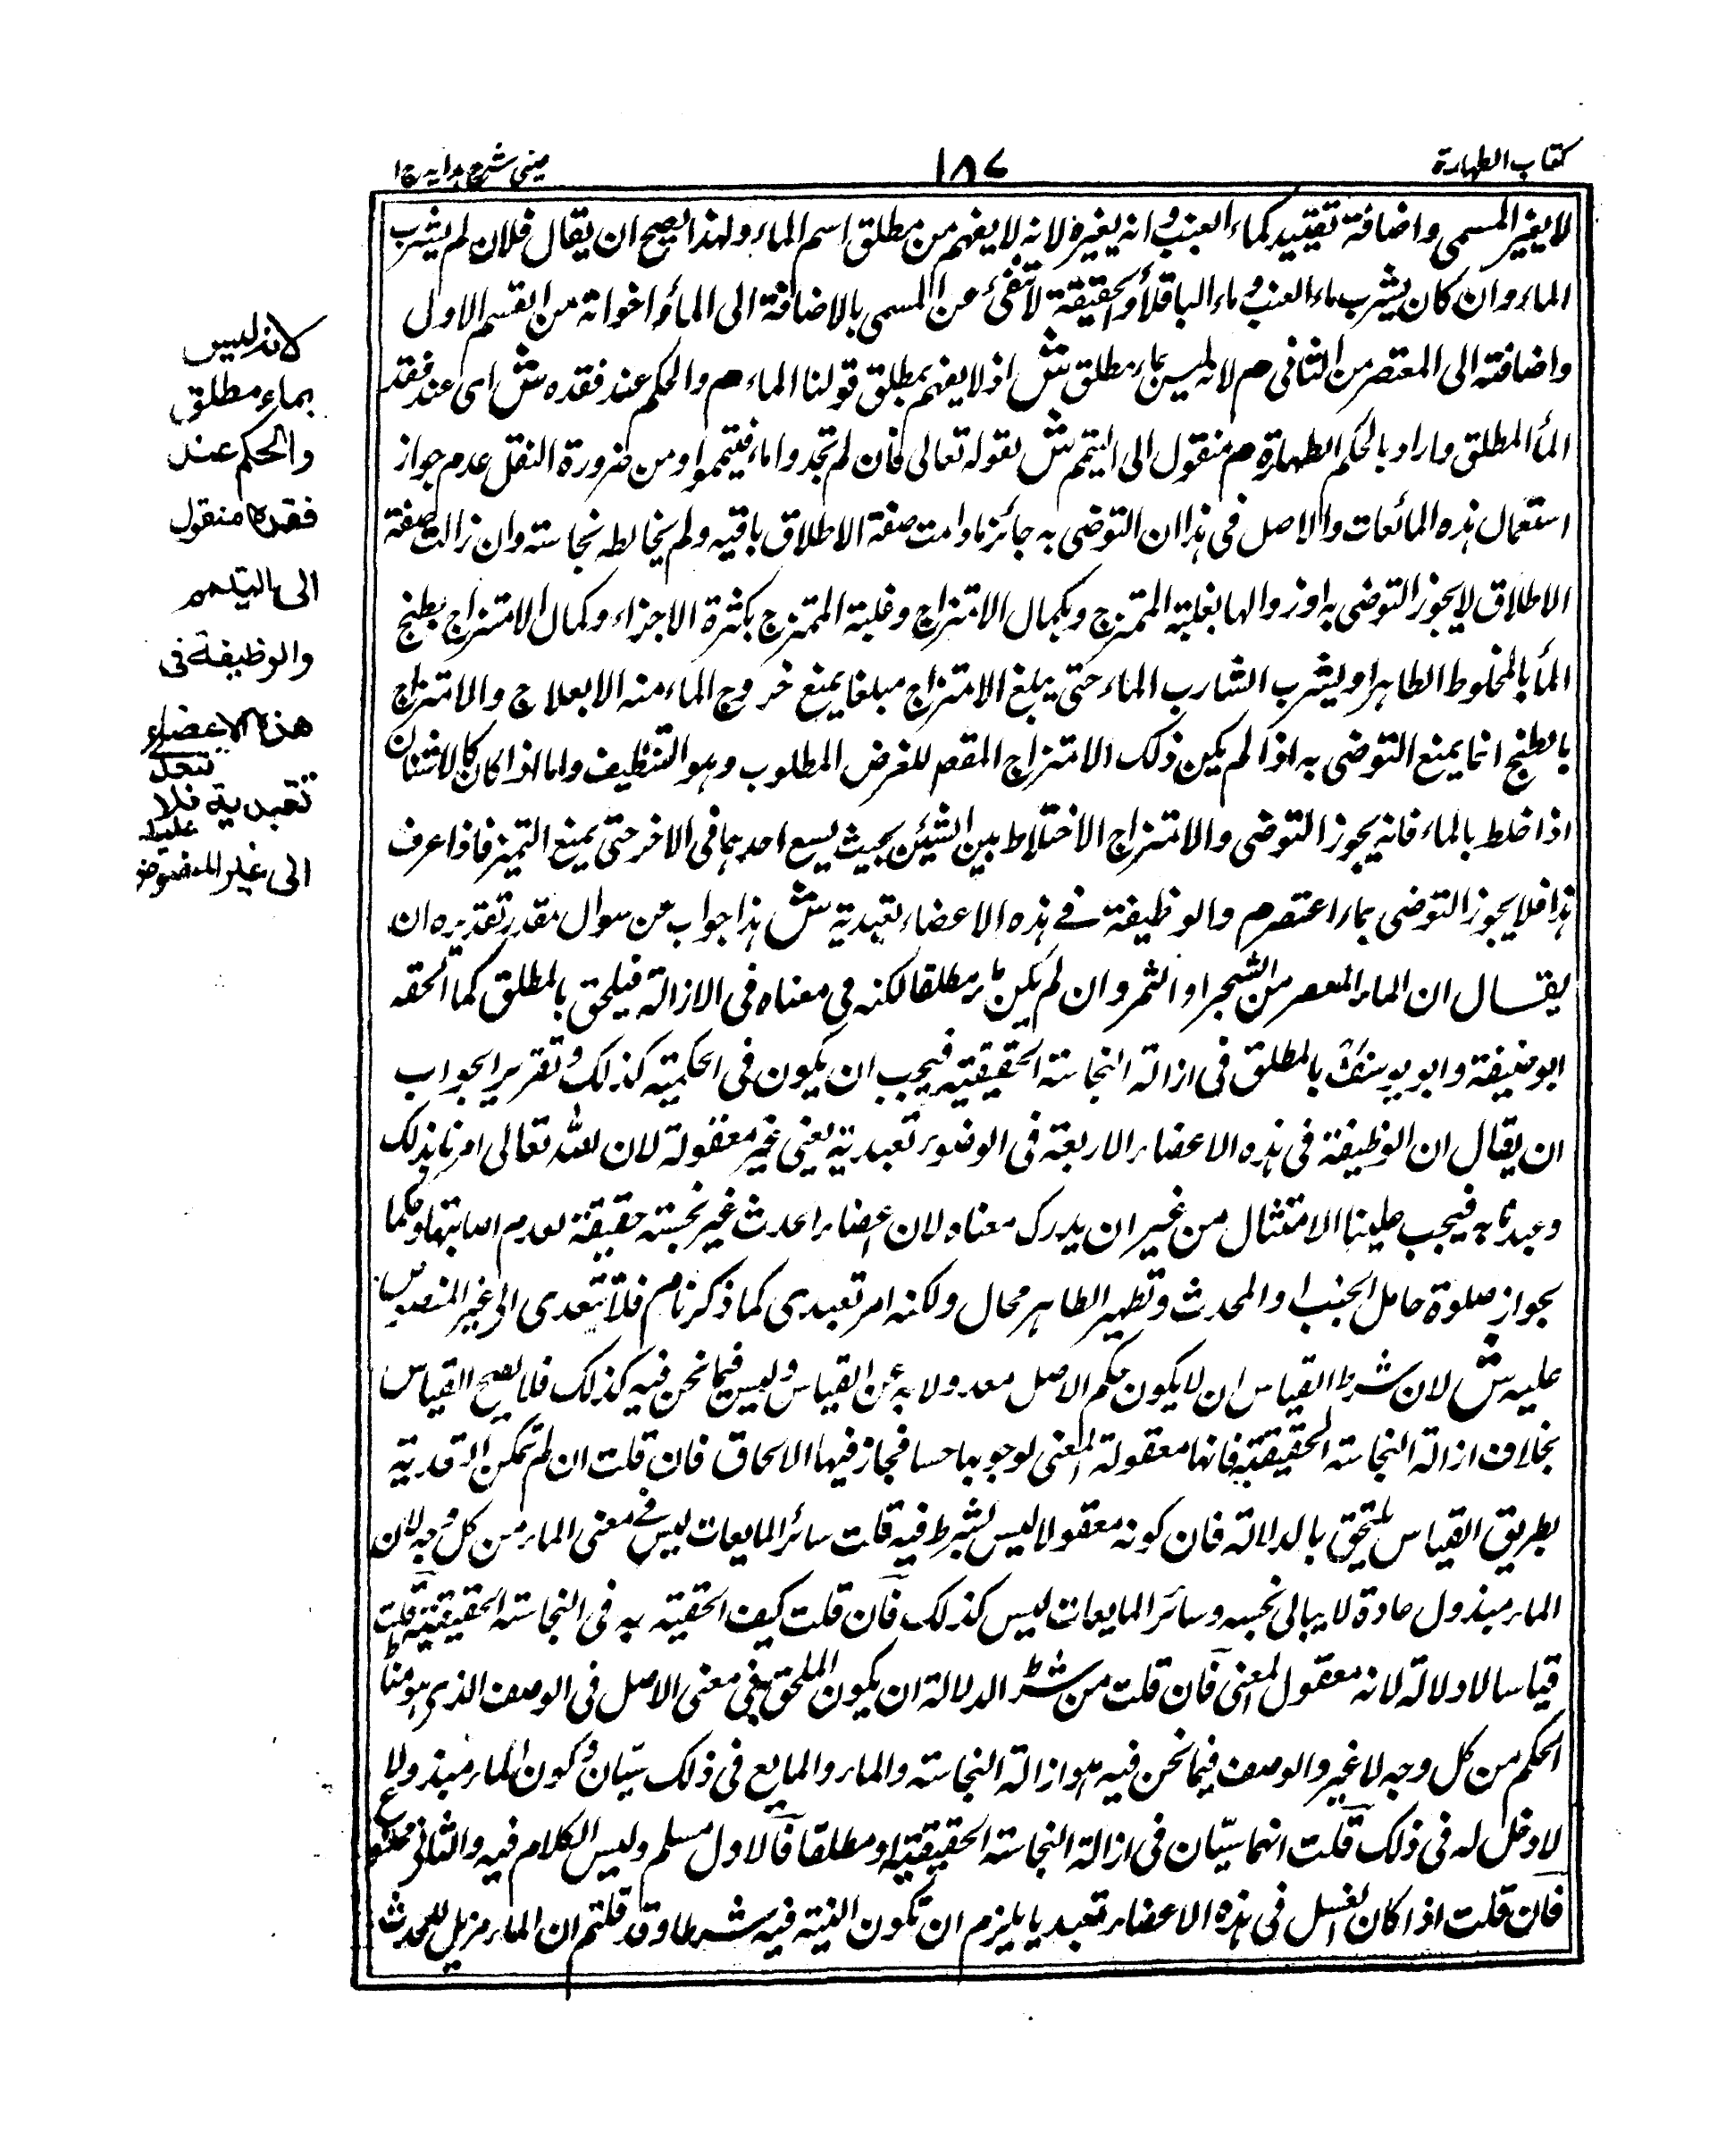 كتاب الطهارة
١٨٧
عينى شرح هدايه ج ١
لا يغير المسمى واضافة تقييد كماء العنب وانه يغيره لانه لا يفهم من مطلق اسم الماء ولهذا يصح ان يقال فلان لم يشرب
الماء وان كان يشرب ماء العنب وماء الباقلأ والحقيقة لا تنفى عن المسمى بالاضافة الى المأ واخواته من القسم الاول
واضافته الى المعتصر من الثانى م لانه ليس بماء مطلق ش اذ لا يفهم بمطلق قولنا الماء م والحكم عند فقده ش اى عند فقد
المأ المطلق واراد بالحكم الطهارة م منقول الى التيمم ش لقوله تعالى فان لم تجدوا ماء فتيمموا ومن ضرورة النقل عدم جواز
استعمال هذه المائعات والاصل فى هذا ان التوضى به جائز مادامت صفة الاطلاق باقيه ولم يخالطه نجاسته وان زالت صفة
الاطلاق لا يجوز التوضى به او زوالها بغلبة الممتزج وبكمال الامتزاج وغلبة الممتزج بكثرة الاجزاء وكمال الامتزاج بطبخ
المأ بالمخلوط الطاهر او يشرب الشارب الماء حتى يبلغ الامتزاج مبلغا يمنع خروج الماء منه الا بعلاج والامتزاج
بالطبخ انما يمنع التوضى به اذا لم يكن ذلك الامتزاج المقصم للغرض المطلوب وهو التنظيف واما اذا كان كالاشنان
اذا خلط بالماء فانه يجوز التوضى والامتزاج الاختلاط بين الشيئين بحيث يسع احدهما فى الاخر حتى يمنع التميز فاذا عرف
هذا فلا يجوز التوضى بماء اعتصر م والوظيفة فے هذه الاعضاء تعبدية ش هذا جواب عن سوال مقدر تقديره ان
يقال ان الماء المعصر من الشجر او الثمر وان لم يكن ماء مطلقا لكنه فى معناه فى الازالة فيلحق بالمطلق كما الحقه
ابو حنيفة وابو يوسف بالمطلق فى ازالة النجاسته الحقيقيته فيجب ان يكون فى الحكميته كذلك وتقرير الجواب
ان يقال ان الوظيفة فى هذه الاعضاء الاربعة فى الوضوء تعبدية يعنى غير معقولة لان الله تعالى امرنا بذلك
وعبدنا به فيجب علينا الامتثال من غير ان يدرك معناه لان اعضاء المحدث غير نجسته حقيقة لعدم اصابتها وحكما
بجواز صلوة حامل الجنب او المحدث وتطهير الطاهر محال ولكنه امر تعبدى كما ذكرنا م فلا تتعدى الى غير المنصوص
عليه ش لان شرط القياس ان لا يكون حكم الاصل معدولا به عن القياس وليس فيما نحن فيه كذلك فلا يصح القياس
بخلاف ازالة النجاسته الحقيقيته فانها معقولة المعنى لوجوبها حسا فجاز فيها الالحاق فان قلت ان لم تمكن التعدية
بطريق القياس يلتحق بالدلالة فان كونه معقولا ليس بشرط فيه قلت سائر المايعات ليس فے معنى الماء من كل وجه لان
الماء مبذول عادة لا يبالى نجسه وسائر المايعات ليس كذلك فان قلت كيف الحقيته به فى النجاسته الحقيقيته قلت
قياسا لا دلالة لانه معقول المعنى فان قلت من شرط الدلالة ان يكون الملحق فى معنى الاصل فى الوصف الذى هو مناط
الحكم من كل وجه لا غير والوصف فيما نحن فيه هو ازالة النجاسته والماء والمايع فى ذلك سيّان وكون الماء مبذولا
لا دخل له فى ذلك قلت انهما سيّان فى ازالة النجاسته الحقيقيته او مطلقا فالاول مسلم وليس الكلام فيه والثانى ممنوع
فان قلت اذا كان الغسل فى هذه الاعضاء تعبديا يلزم ان تكون النيته فيه شرطا وقد قلتم ان الماء مزيل للحدث
لانه ليس
بماء مطلق
والحكم عند
فقده منقول
الى التيمم
والوظيفة فى
هذه الاعضاء
تعبدية فلا تتعدى
الى غير المنصوص عليه